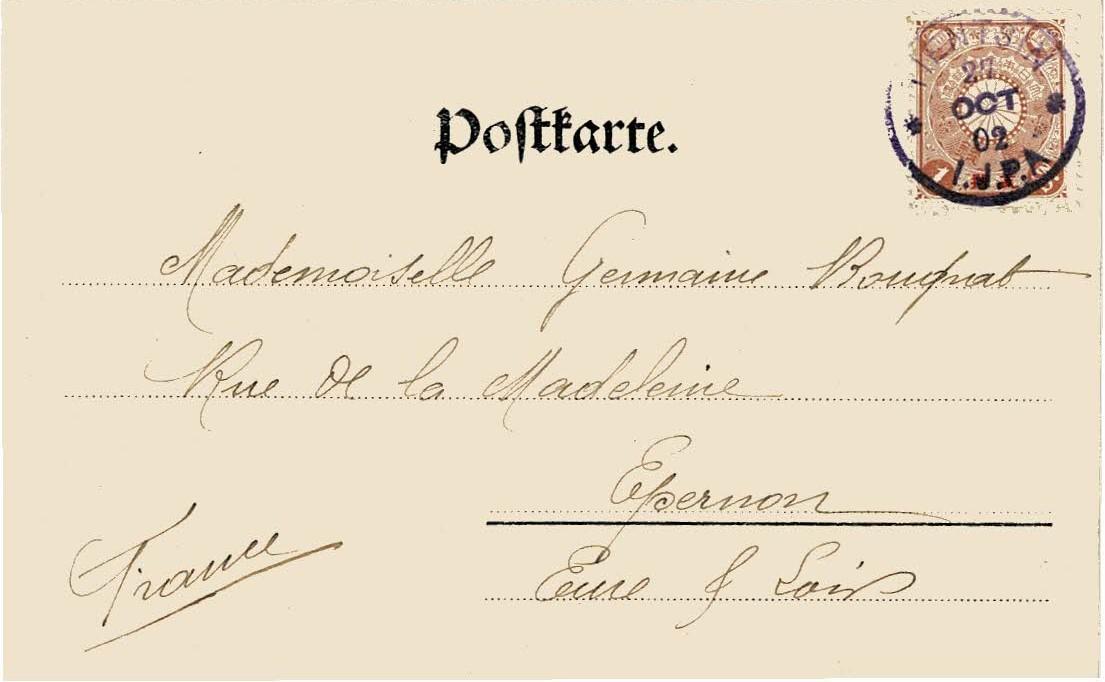 TIENTSIN
27
OCT
02
I.J.P.A
1
Postkarte.
Mademoiselle Germaine
Rue de la Madeleine
Epernon
Eure & Loir
France